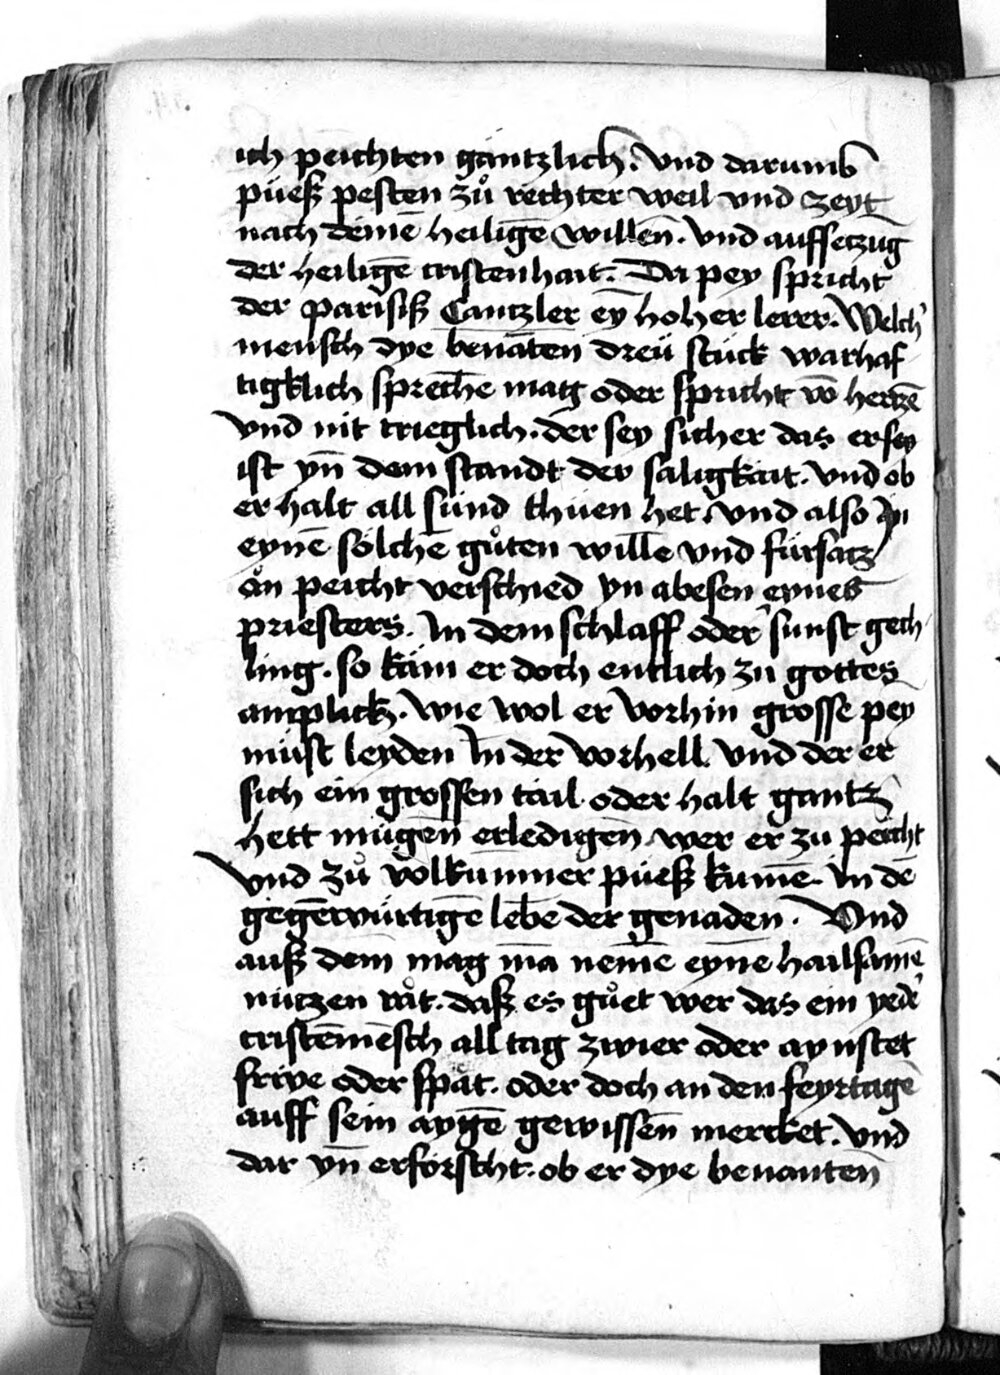 ich peichten gäntzlich. Vnd darumb
püeß pesten zů rechter weil vnd zeyt
nach deinē heiligē willen. Vnd auffsetzūg
der heiligē cristenhait. Da pey spricht
der parisiß Cantzler eȳ hoher lerer. Welch᾽
mensch dye benātē dreü stück warhaf
tigklich sprechē mag oder spricht vō hertzē
vnd nit trieglich. der sey sicher das er sey
ist yn̄ dem standt der säligkäit. vnd ob
er halt all sünd thüen het. Vnd also in
eynē sölchē gůten willē vnd fürsatz
ån peicht verschied yn abesen eynes
priesters. In dem schlaff oder sunst gech
ling. so käm er doch entlich zu gottes
amplick. wie wol er vorhin grosse pey
müst leyden In der vorhell. vnd der er
sich ein grossen täil oder halt gantz
hett mügen erledigen wer er zu peicht
vnd zů volkummer püeß kumē. In dē
gegēwürtigē lebē der genaden. Vnd
auß dem mag mā nemē eynē hailsamē
nützen råt. daß es gůet wer das ein yed᾽
cristēmēsch all tag zwier oder aynstet
früe oder spät. oder doch an den feyrtagē
auff sein aygē gewissen mercket. Vnd
dar yn̄ erforscht. ob er dye benanten